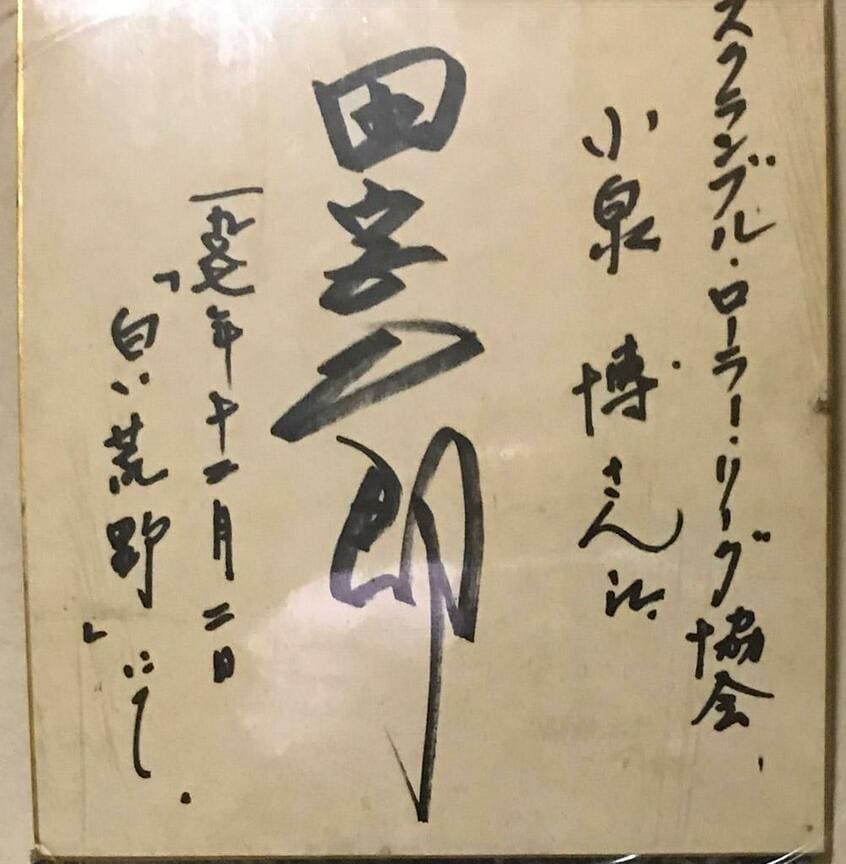 スクランブル・ローラー・リーグ協会、
小泉 博さん江
田宮二郎
一九七七年十二月二日
「白い荒野」にて.